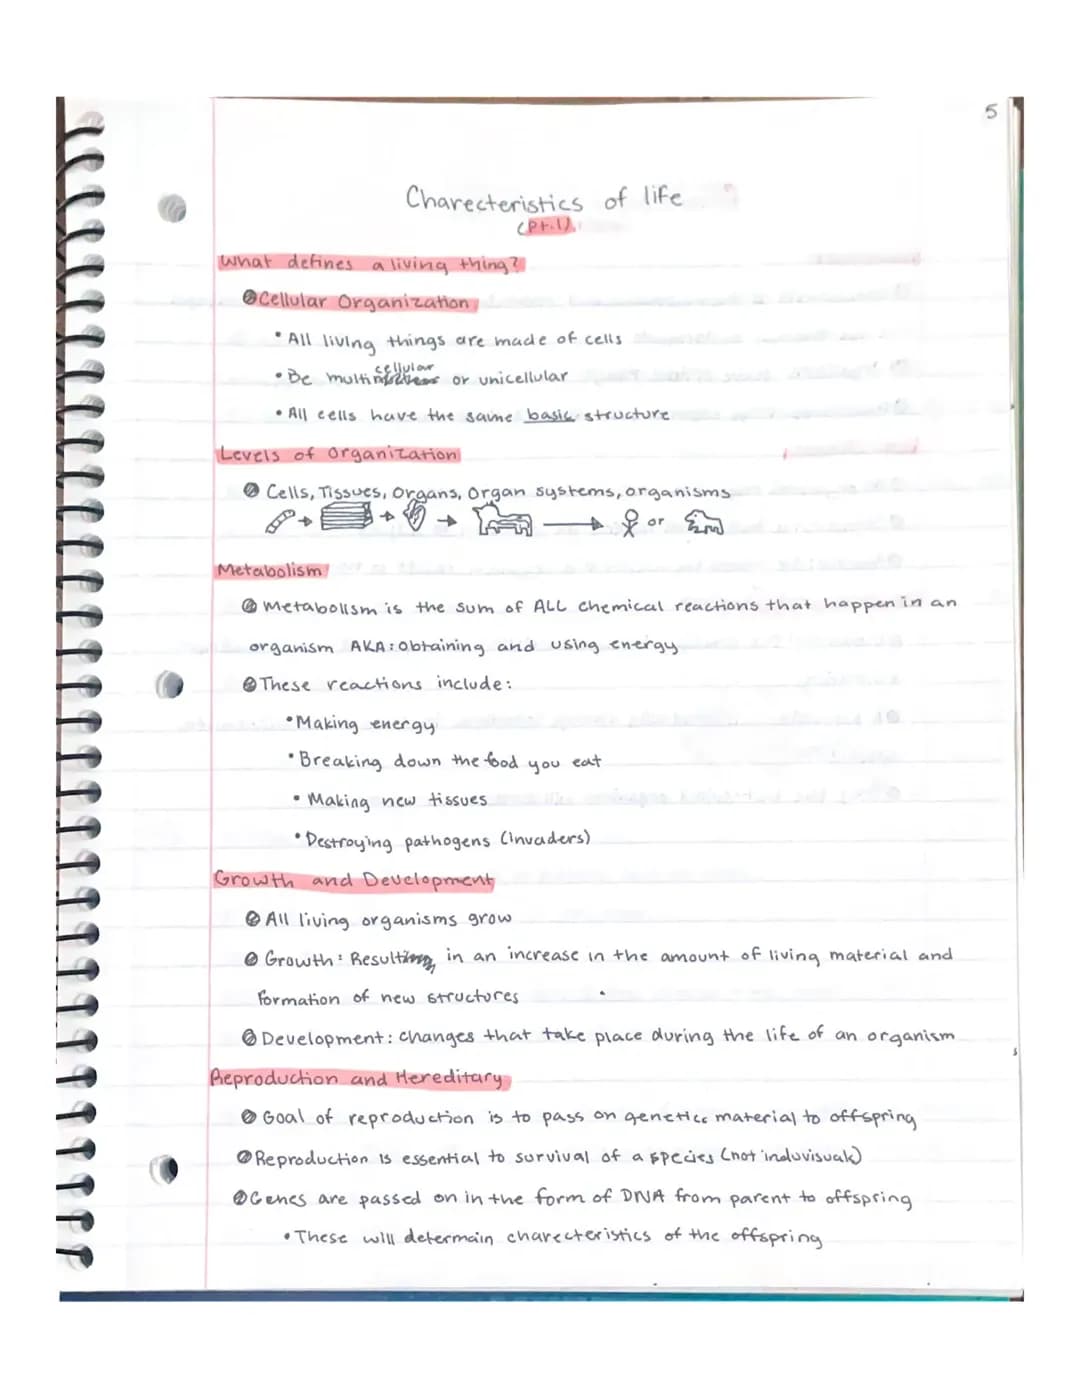 5
Charecteristics of life
(Pt.1)
What defines a living thing?
Cellular Organization
• All living things are made of cells
• Be multicellular or unicellular
• All cells have the same basic structure
Levels of Organization
Cells, Tissues, Organs, Organ systems, organisms
or
Metabolism
Metabolism is the sum of ALL chemical reactions that happen in an
organism AKA: Obtaining and using energy
These reactions include:
• Making energy
• Breaking down the food you eat
• Making new tissues
• Destroying pathogens (Invaders)
Growth and Development
All living organisms grow
Growth: Resulting in an increase in the amount of living material and
formation of new structures
Development: changes that take place during the life of an organism
Reproduction and Hereditary
Goal of reproduction is to pass on genetics material to offspring
Reproduction is essential to survival of a species (not induvisuals)
Genes are passed on in the form of DNA from parent to offspring
• These will determain charecteristics of the offspring